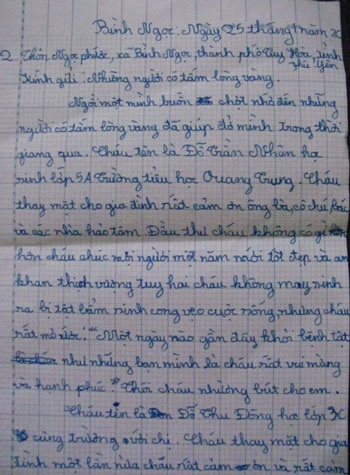 Bình Ngọc: Ngày 25 tháng 1 năm 2
2 Thôn Ngọc phước, xã Bình Ngọc, thành phố Tuy Hòa, tỉnh
phú yên
Kính gửi: Những người có tấm lòng vàng.
Ngồi một mình buồn chời nhớ đến những
người có tấm lòng vàng đã giúp đỡ mình trong thời
giang qua. Cháu tên là Đỗ Trần Nhân học
sinh lớp 5A Trường tiểu học Quang Trung. Cháu
thay mặt cho gia đình rất cảm ơn ông bà, cô chú, bác
và các nhà hảo tâm. Đầu thư cháu không có gì hơn
hơn cháu chúc mỗi người một năm mới tốt đẹp và an
khan thịnh vượng tuy hai cháu không may sinh
ra bị tật bẩm sinh cong vẹo cuộc sống nhưng cháu
rất mơ ước: "Một ngày nào gần đây khỏi bệnh tật
như những bạn mình là cháu rất vui mừng
và hạnh phúc" Thôi cháu nhường bút cho em.
Cháu tên là Đỗ Thu Đông học lớp 3C
cùng trường với chị. Cháu thay mặt cho gia
đình một lần nữa cháu rất cảm ơn và rất cảm